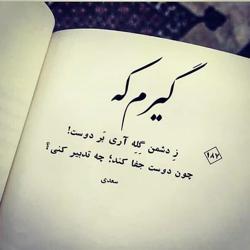 گیرم که
ز دشمن گِله آری بَر دوست!
چون دوست جفا کند؛ چه تدبیر کنی؟
سعدی